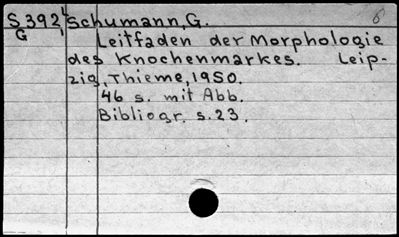 S 392 Schumann, G. 6
G Leitfaden der Morphologie
des Knochenmarkes. Leip-
zig, Thieme, 1950.
46 s. mit Abb.
Bibliogr. s. 23.